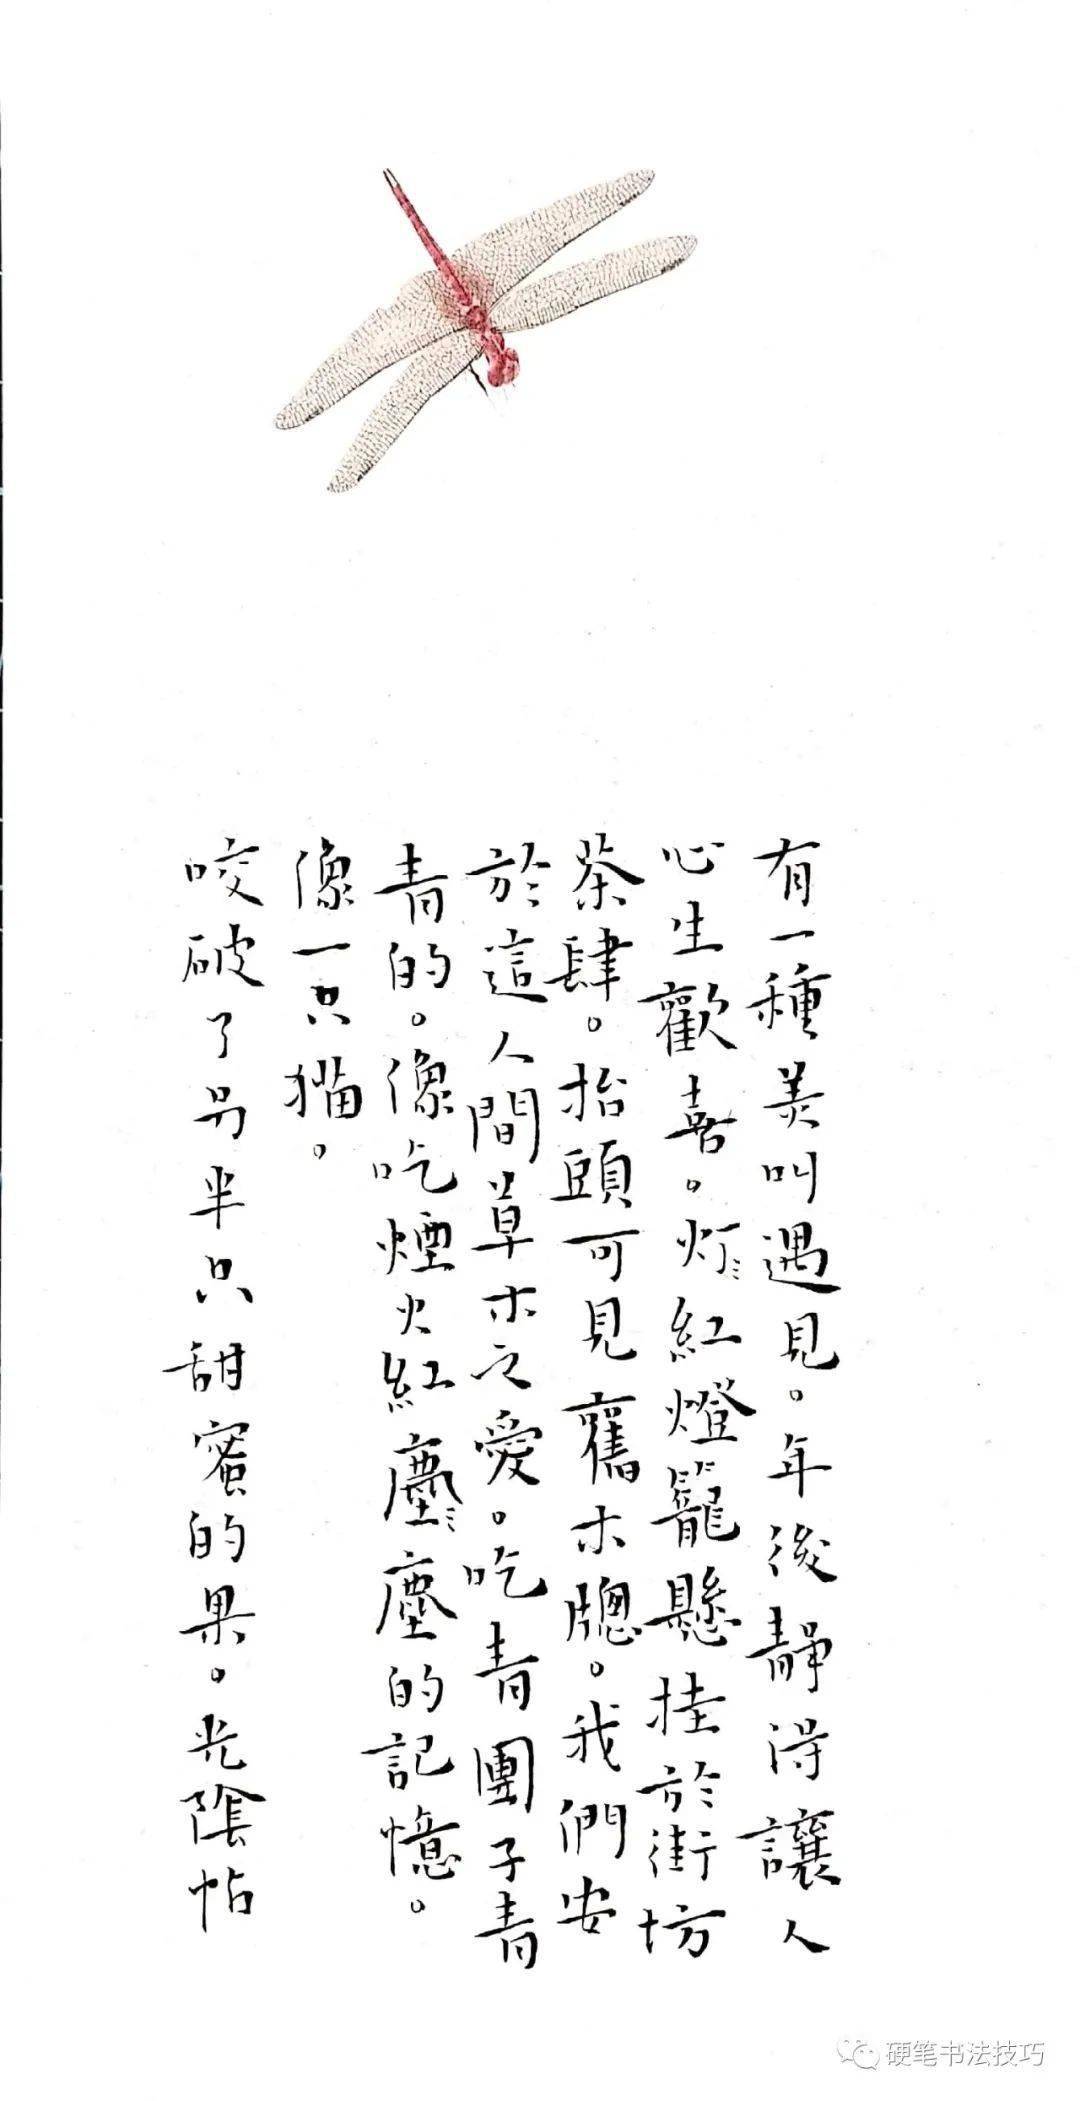 有一種美叫遇見。年後靜得讓人
心生歡喜。灯〻紅燈籠懸挂於街坊
茶肆。抬頭可見舊木牕。我們安
於這人間草木之愛。吃青團子青
青的。像吃煙火紅塵〻塵的記憶。
像一只猫。
咬破了另半只甜蜜的果。光陰帖
硬笔书法技巧